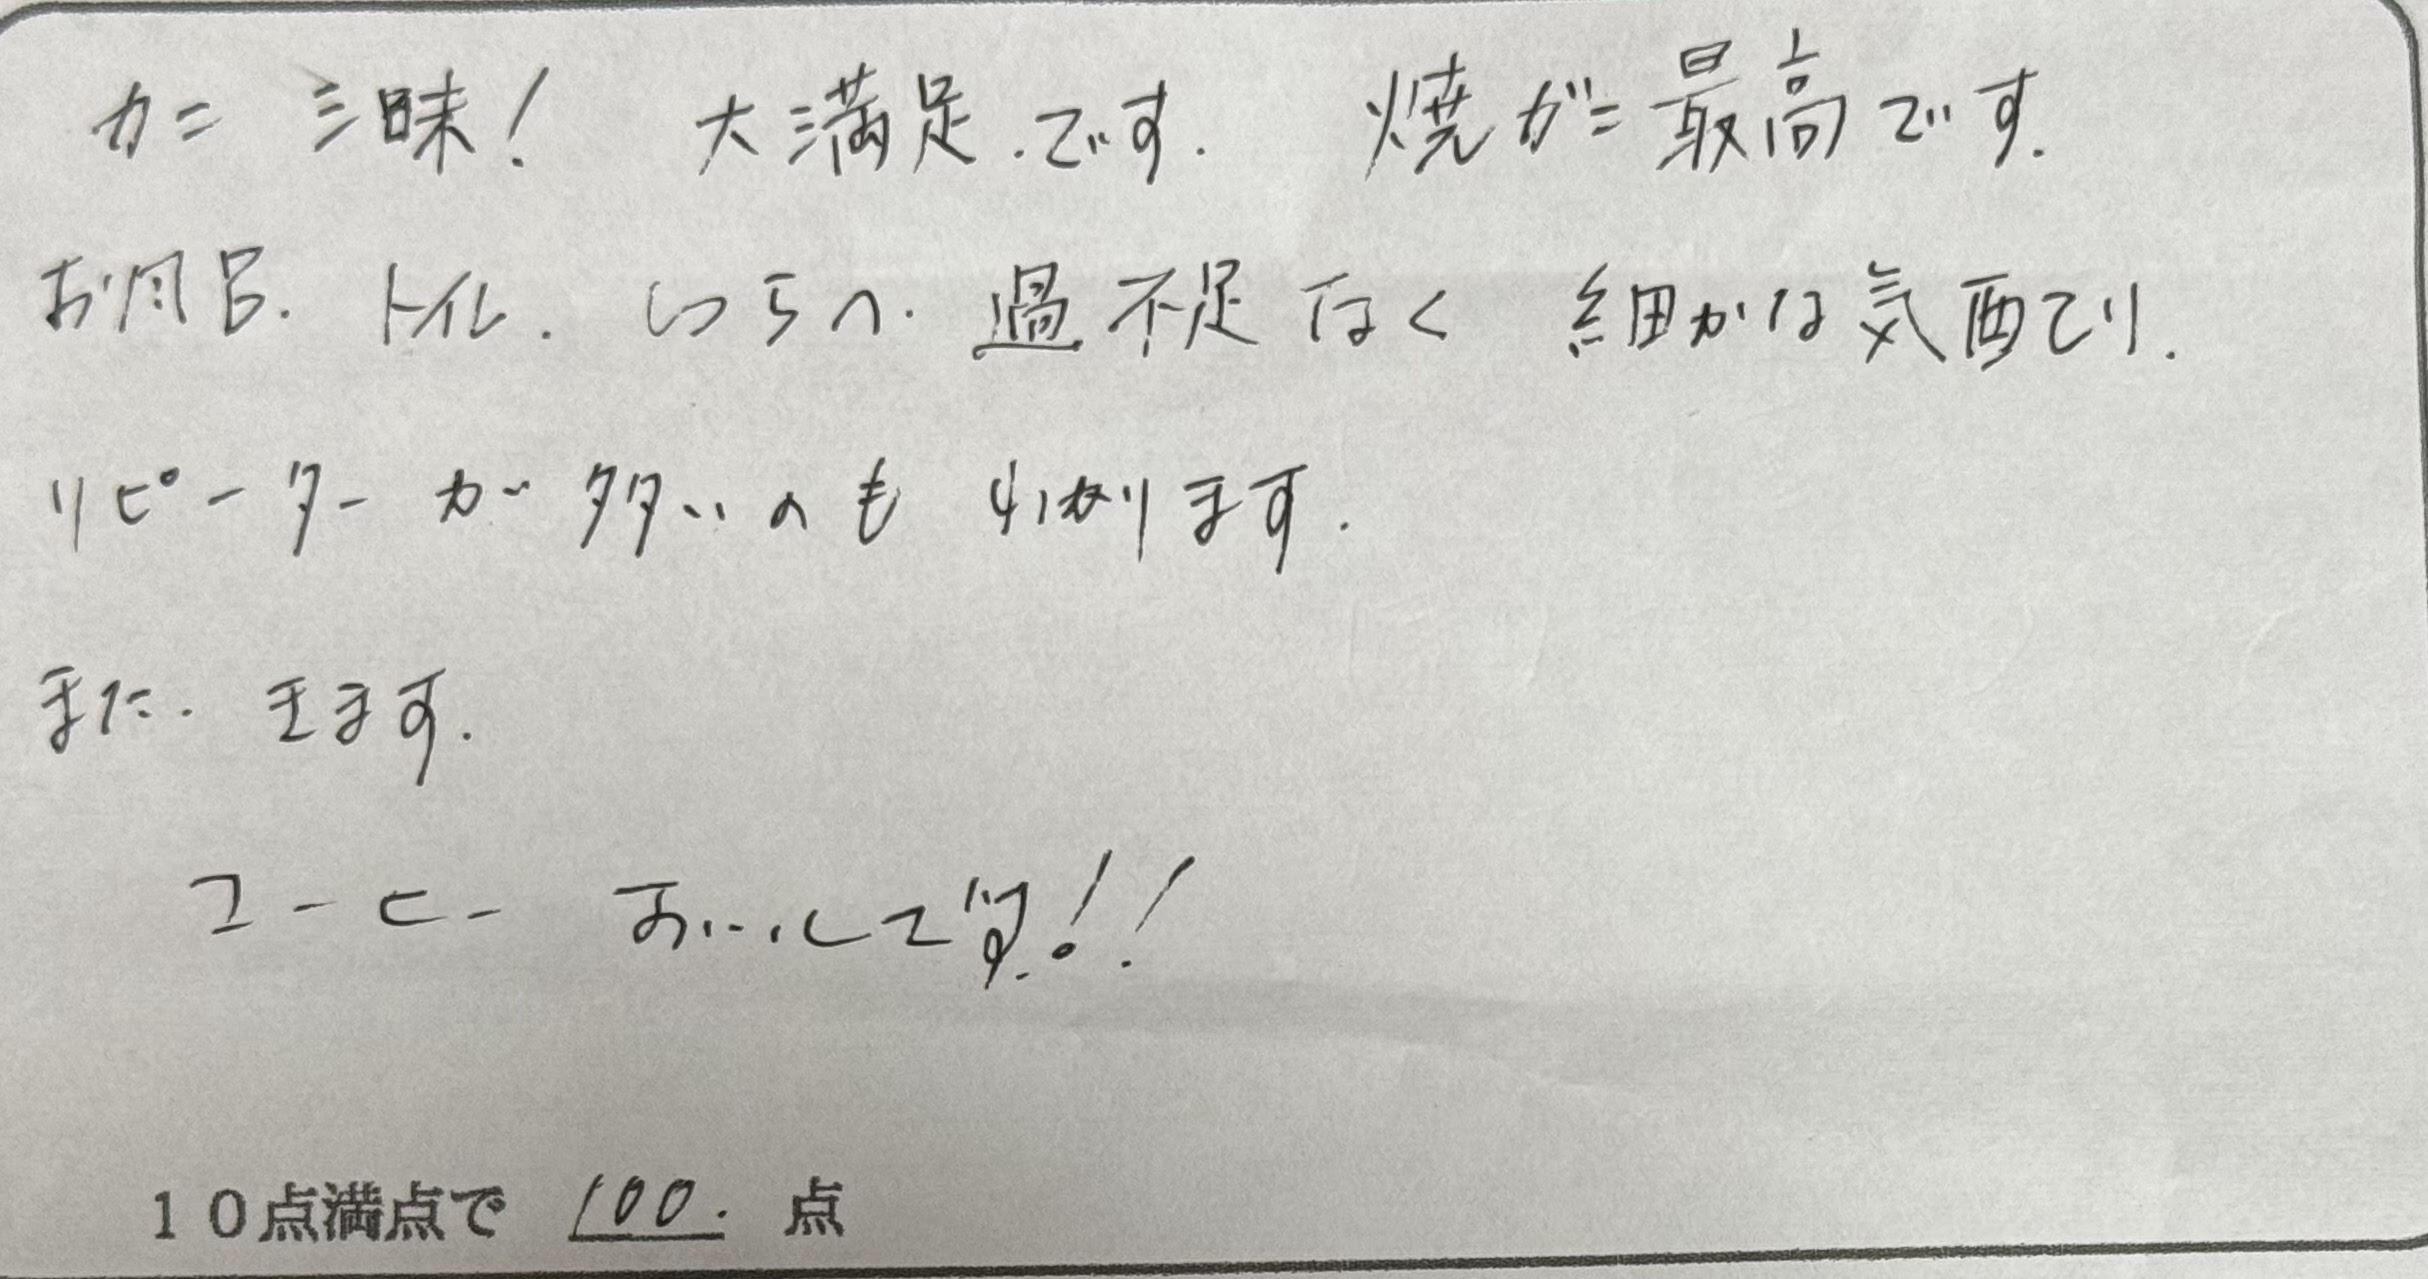 カニ 三昧! 大満足.です. 焼ガニ最高です.
お風呂. トイレ. しつらへ. 過不足なく 細かな気配り.
リピーター が 多いのも わかります.
また. きます.
コーヒー おいしです!!
10点満点で 100. 点